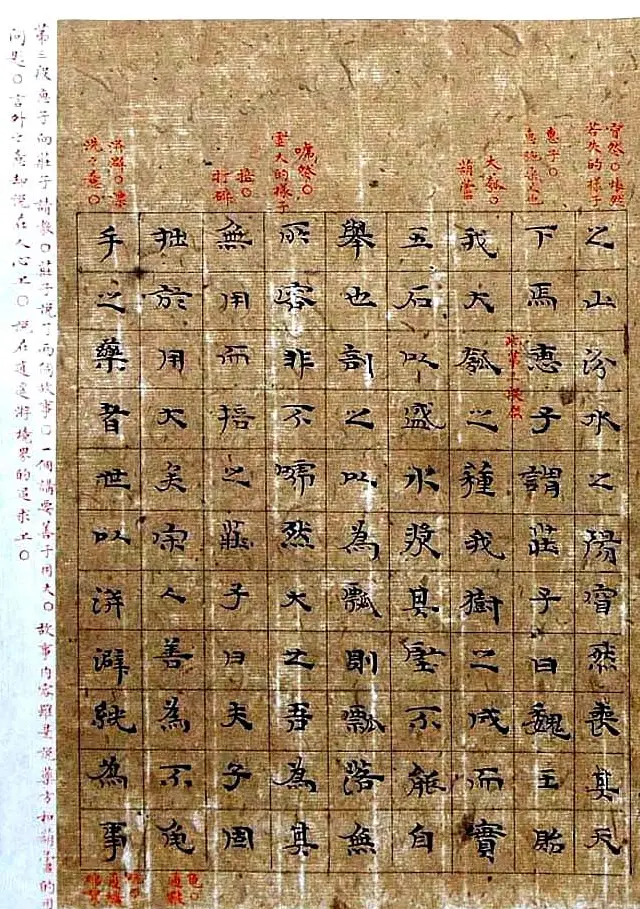 窅然〇悵然
若失的樣子
惠子〇
大瓠〇
葫蘆
呺然〇
虛大的樣子
掊〇
打碎
洴澼〇漂
洗之意〇
之山汾水之陽窅然喪其天
下焉惠子謂莊子曰魏王貽
我大瓠之種我樹之成而實
五石以盛水漿其堅不能自
舉也剖之以為瓢則瓢落無
所容非不呺然大也吾為其
無用而掊之莊子曰夫子固
拙於用大矣宋人善為不龜
手之藥者世以洴澼絖為事
第三段惠子向莊子請教〇莊子說了兩個故事〇一個講要善于用大〇故事內容雖是說藥方和葫蘆的用
问题〇言外之意却說在人心上〇說在逍遙游境界的追求上〇